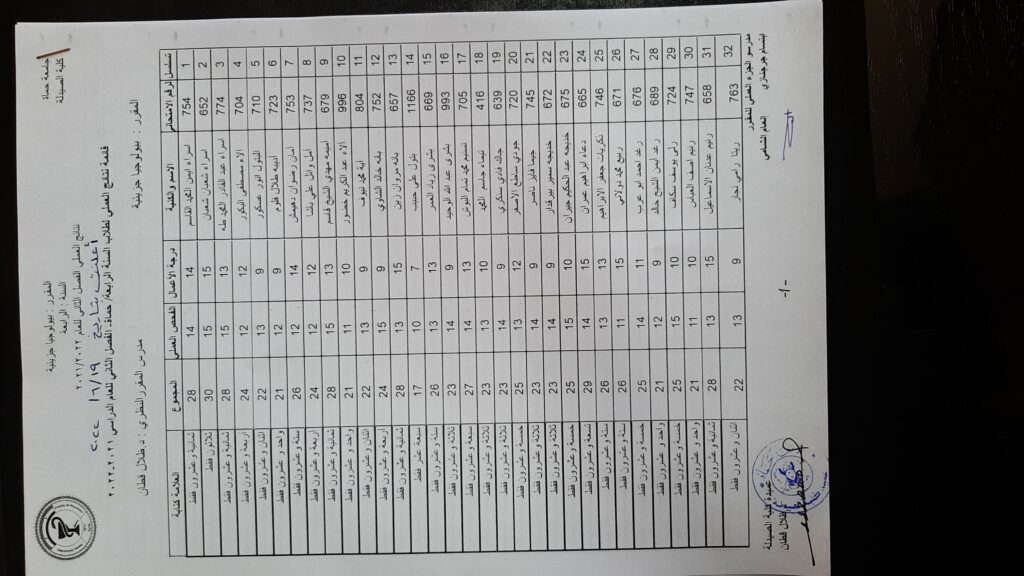 جامعة حماة
كلية الصيدلة
المقرر : بيولوجيا جزيئية
السنة : الرابعة
نتائج العملي الفصل الثاني للعام ٢٠٢١/٢٠٢٢
أعلنت بتاريخ ١٩ / ٦ / ٢٠٢٢
قائمة نتائج العملي لطلاب السنة الرابعة/ حماة- الفصل الثاني للعام الدراسي ٢٠٢١-٢٠٢٢
المقرر : بيولوجيا جزيئية مدرس المقرر النظري : د. طلال قطان
تسلسل الرقم الامتحاني الاسم والكنية درجة الاعمال الفحص العملي المجموع العلامة كتابة
1 754 اسراء ايس المحمد القاسم 14 14 28 ثمانية و عشرون فقط
2 652 اسراء شعبان شعبان 15 15 30 ثلاثون فقط
3 774 اسراء عبد القادر المحمد طه 13 15 28 ثمانية و عشرون فقط
4 704 الاء مصطفى البكور 12 12 24 اربعة و عشرون فقط
5 710 البتول انور عسكور 9 13 22 اثنان و عشرون فقط
6 723 امينه طلال فلوم 9 12 21 واحد و عشرون فقط
7 753 امان رمضان دهيمش 14 12 26 ستة و عشرون فقط
8 737 امل وائل علي باشا 12 12 24 اربعة و عشرون فقط
9 679 اميمه مهدي الشيخ قاسم 13 15 28 ثمانية و عشرون فقط
10 996 الاء عبد الكريم خضور 10 11 21 واحد و عشرون فقط
11 804 اية محمد نيوف 9 13 22 اثنان و عشرون فقط
12 752 بانه خالد الشاوي 9 15 24 اربعة و عشرون فقط
13 657 بانه مروان زين 15 13 28 ثمانية و عشرون فقط
14 1166 بتول علي حبيب 7 10 17 سبعة عشر فقط
15 669 بشرى زياد العمر 13 13 26 ستة و عشرون فقط
16 993 بشرى عبد الله الوحيد 9 14 23 ثلاثة و عشرون فقط
17 705 تسنيم محمد تمام البوش 13 14 27 سبعة و عشرون فقط
18 416 تيماء جاسم المحمد 10 13 23 ثلاثة و عشرون فقط
19 639 جاك فادي سنكري 9 14 23 ثلاثة و عشرون فقط
20 720 جودي ساطع الاصفر 12 13 25 خمسة و عشرون فقط
21 745 جيما فايز ناصر 9 14 23 ثلاثة و عشرون فقط
22 672 خديجه سمير بيرقدار 9 14 23 ثلاثة و عشرون فقط
23 675 خديجه عبد الحكيم جبران 10 15 25 خمسة و عشرون فقط
24 665 دعاء ابراهيم عمران 15 14 29 تسعة و عشرون فقط
25 746 ذكريات جعفر الابراهيم 13 13 26 ستة و عشرون فقط
26 671 ربيع محمد دولاتي 15 11 26 ستة و عشرون فقط
27 676 رغد احمد بو عرب 11 14 25 خمسة و عشرون فقط
28 689 رغد ايمن الشيخ خالد 9 12 21 واحد و عشرون فقط
29 724 رلى يوسف سكاف 10 15 25 خمسة و عشرون فقط
30 747 رنيم اصف العباس 10 11 21 واحد و عشرون فقط
31 658 رنيم عدنان الاسماعيل 15 13 28 ثمانية و عشرون فقط
32 763 ريتا رامي نجار 9 13 22 اثنان و عشرون فقط
مدرسو الجزء العملي للمقرر
ابتسام جرجنازي إنعام الشامي
-١-
عميدة كلية الصيدلة
د. طلال قطان